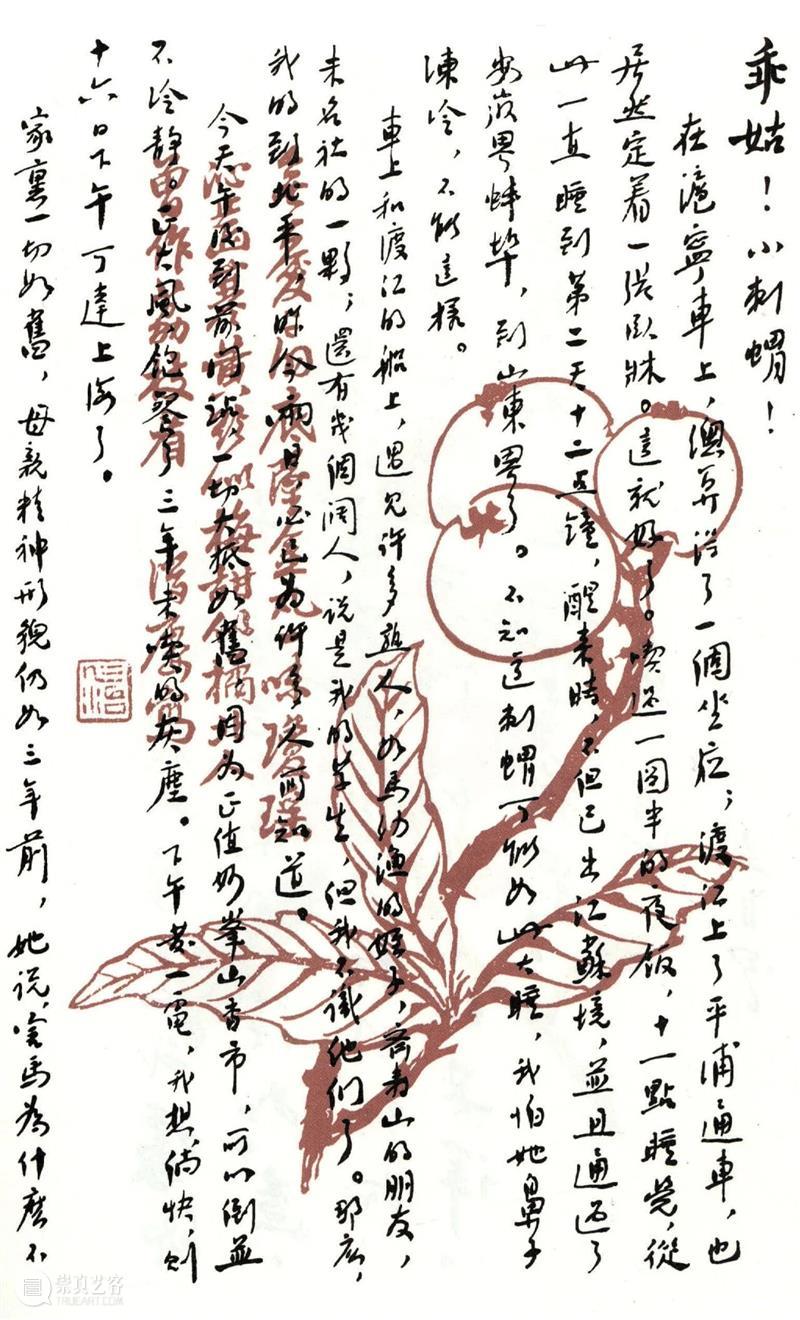 乖姑！小刺蝟！
在滬寧車上，總算得了一個坐位；渡江上了平浦通車，也
居然定着一張臥牀。這就好了。喫過一圓半的夜飯，十一點睡覺，從
此一直睡到第二天十二點鐘，醒來時，不但已出江蘇境，並且通過了
安徽界蚌埠，到山東界了。不知道刺蝟可能如此大睡，我怕她鼻子
凍冷，不能這樣。
車上和渡江的船上，遇見許多熟人，如馬幼漁的姪子，齊壽山的朋友，
未名社的一夥；還有幾個闊人，說是我的學生，但我不識他們了。那麽，
我的到北平，昨今兩日，必已為許多人所知道。
今天午後到前門站，一切大抵如舊，因為正值妙峯山香市，所以倒並
不冷静。正大風，飽餐了三年未喫的灰塵。下午發一電，我想，倘快，則
十六日下午可達上海了。
家裏一切如舊，母親精神形貌仍如三年前，她說，害馬為什麽不
崇真艺客
TRUEART.COM